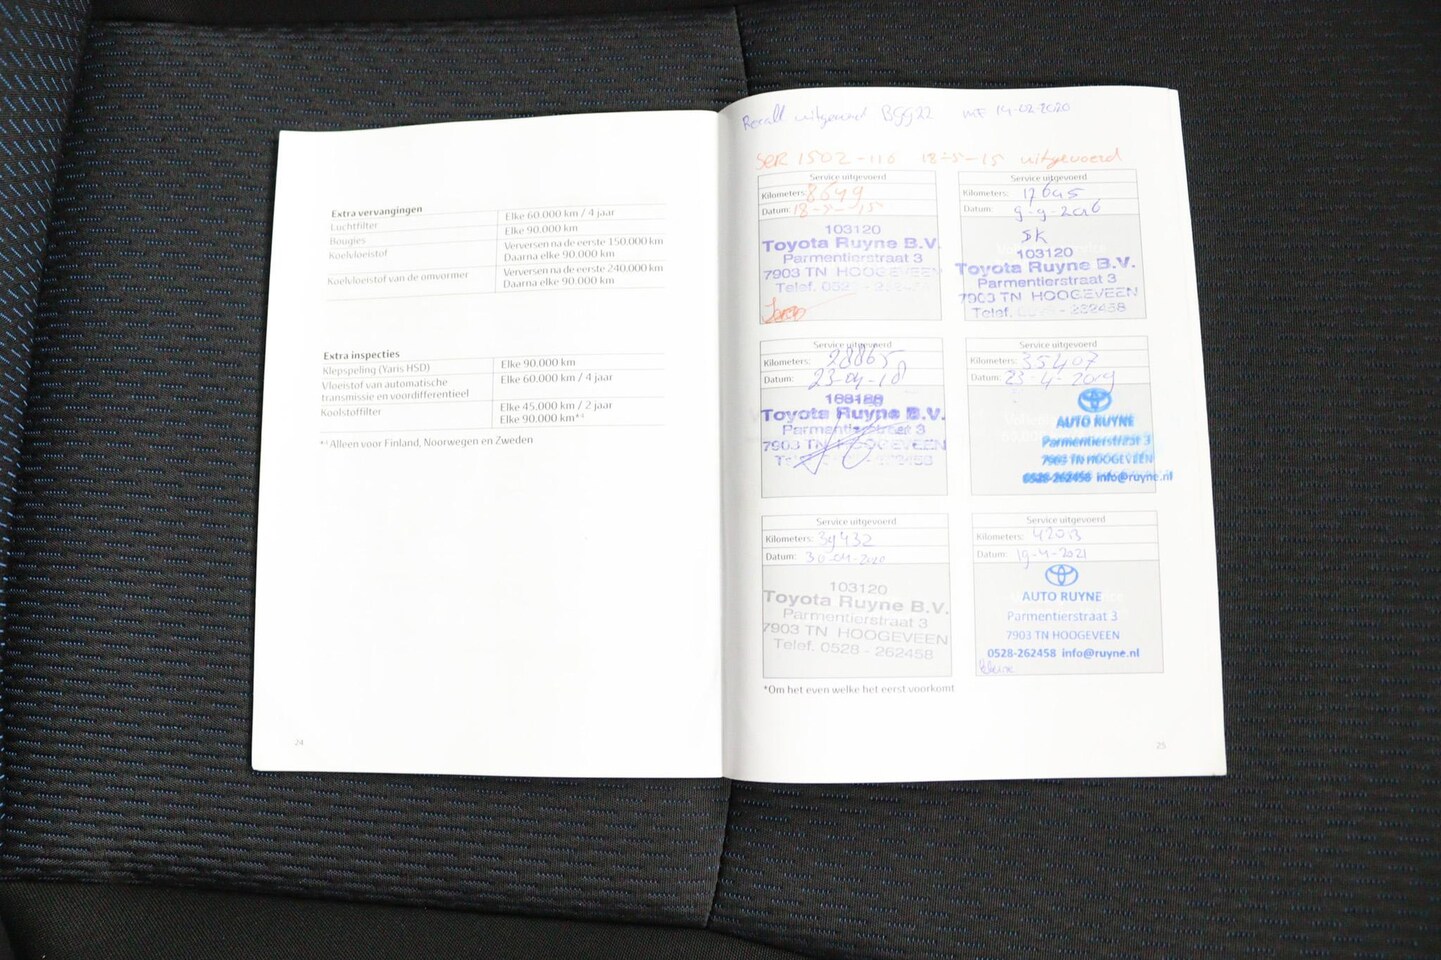 Extra vervangingen
Luchtfilter Elke 60.000 km / 4 jaar
Bougies Elke 90.000 km
Koelvloeistof Verversen na de eerste 150.000 km
Daarna elke 90.000 km
Koelvloeistof van de omvormer Verversen na de eerste 240.000 km
Daarna elke 90.000 km
Extra inspecties
Klepspeling (Yaris HSD) Elke 90.000 km
Vloeistof van automatische Elke 60.000 km / 4 jaar
transmissie en voordifferentieel
Koolstoffilter Elke 45.000 km / 2 jaar
Elke 90.000 km*⁴
*⁴Alleen voor Finland, Noorwegen en Zweden
24
Recall uitgevoerd 14-02-2020
SER 1502-116 18-5-15 uitgevoerd
Service uitgevoerd
Kilometers: 8649
Datum: 18-5-15
103120
Toyota Ruyne B.V.
Parmentierstraat 3
7903 TN HOOGEVEEN
Telef. 0528 -
Service uitgevoerd
Kilometers: 17645
Datum: 9-9-2016
SK
103120
Toyota Ruyne B.V.
Parmentierstraat 3
7903 TN HOOGEVEEN
Telef. - 262458
Service uitgevoerd
Kilometers: 28865
Datum: 23-04-18
Toyota Ruyne B.V.
Parmentierstraat 3
7903 TN HOOGEVEEN
Service uitgevoerd
Kilometers: 35407
Datum: 23-4-2019
AUTO RUYNE
Parmentierstraat 3
7903 TN HOOGEVEEN
0528-262458 info@ruyne.nl
Service uitgevoerd
Kilometers: 39432
Datum: 30-04-2020
103120
Toyota Ruyne B.V.
Parmentierstraat 3
7903 TN HOOGEVEEN
Telef. 0528 - 262458
Service uitgevoerd
Kilometers:
Datum: 19-4-2021
AUTO RUYNE
Parmentierstraat 3
7903 TN HOOGEVEEN
0528-262458 info@ruyne.nl
*Om het even welke het eerst voorkomt
25